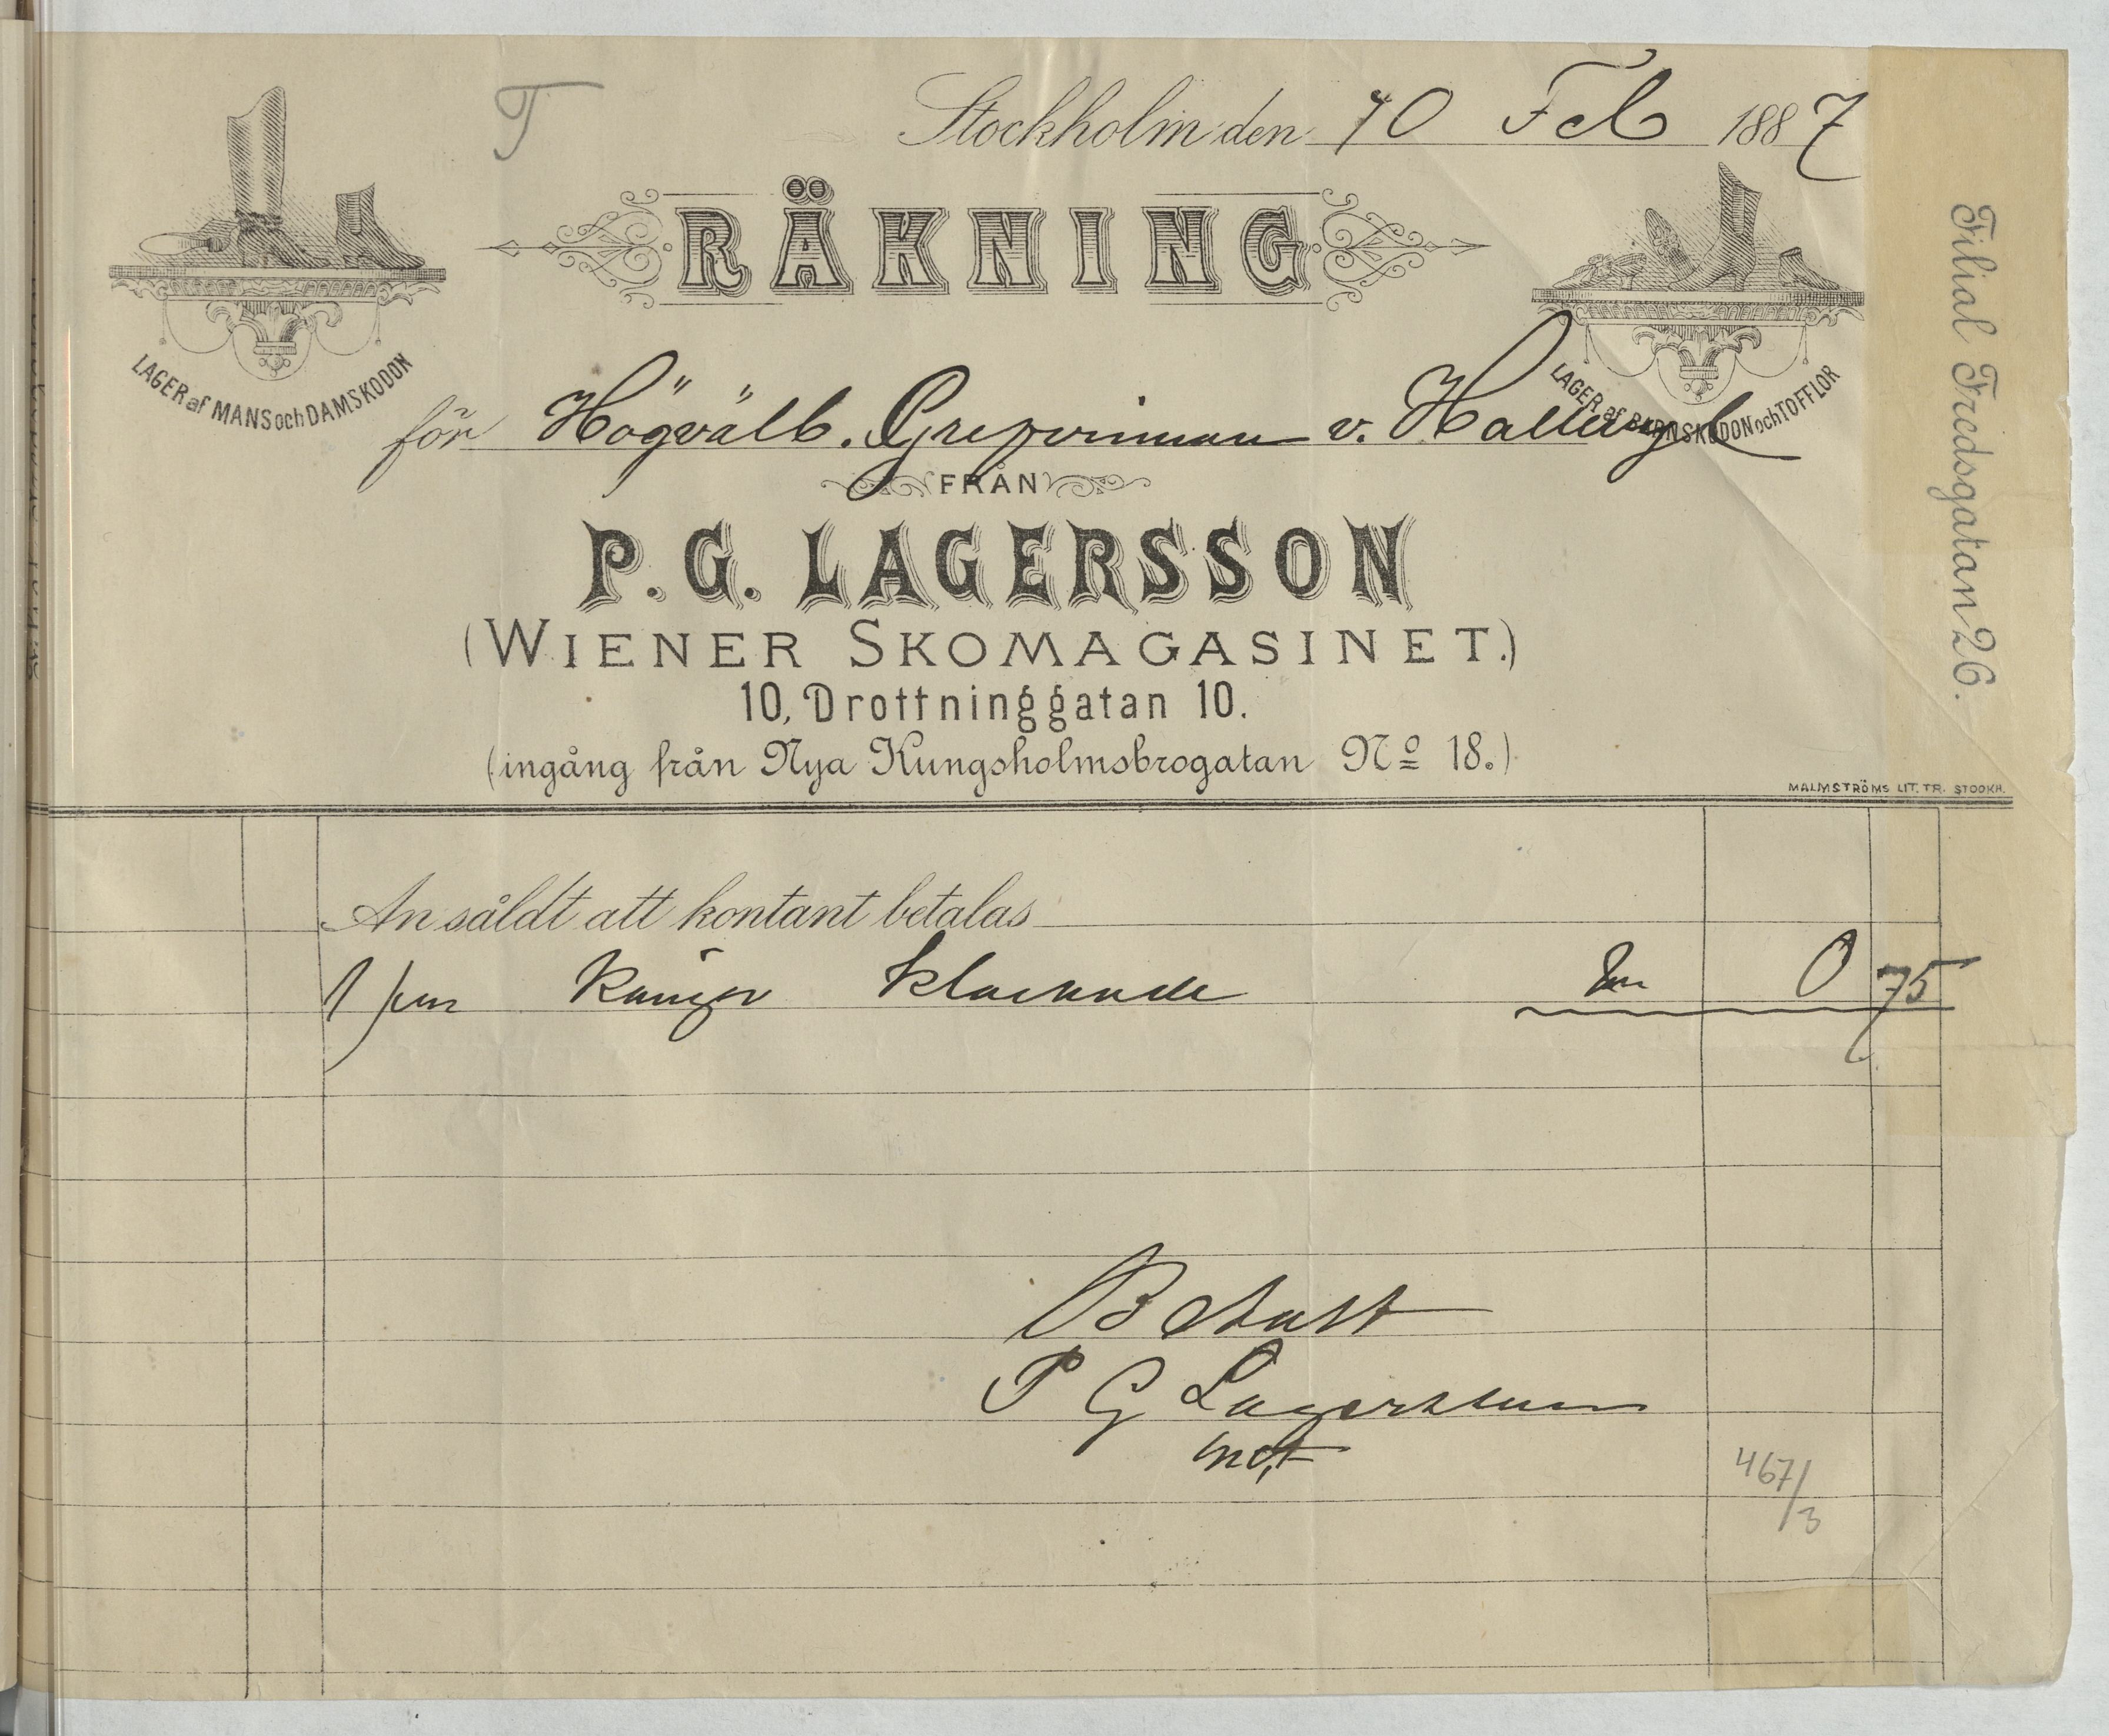 T
Stockholm den 10 Feb 1887
RÄKNING
LAGER af MANS och DAMSKODON
LAGER af BARNSKODON och TOFFLOR
för Högvälb. Grefvinnan v. Hallwyl
FRÅN
P. G. LAGERSSON
(WIENER SKOMAGASINET.)
10, Drottninggatan 10.
(ingång från Nya Kungsholmsbrogatan No 18.)
MALMSTRÖMS LIT. TR. STOCKH.
Filial Fredsgatan 26.
An såldt att kontant betalas
1 par Kängor klackade 0 75
Betalt
P G Lagersson
467/3